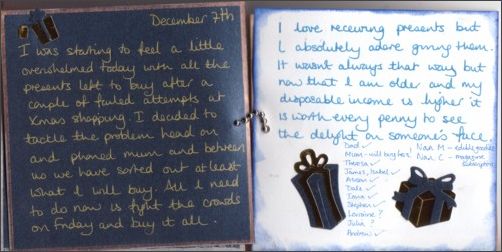 December 7th
I was starting to feel a little
overwhelmed today with all the
presents left to buy after a
couple of failed attempts at
Xmas shopping. I decided to
tackle the problem head on
and phoned mum and between
us we have sorted out at least
what I will buy. All I need
to do now is fight the crowds
on Friday and buy it all.
I love receiving presents but
I absolutely adore giving them.
It wasn't always that way but
now that I am older and my
disposable income is higher it
is worth every penny to see
the delight on someone's face.
Dad ✓
Mum - will buy her
Theresa ✓
James, Isabel ✓
Alison ✓
Dale ✓
Iona ✓
Stephen ✓
Lorraine ?
Julia ?
Andrew ✓
Nan M - edible goodies
Nan C - magazine
subscription